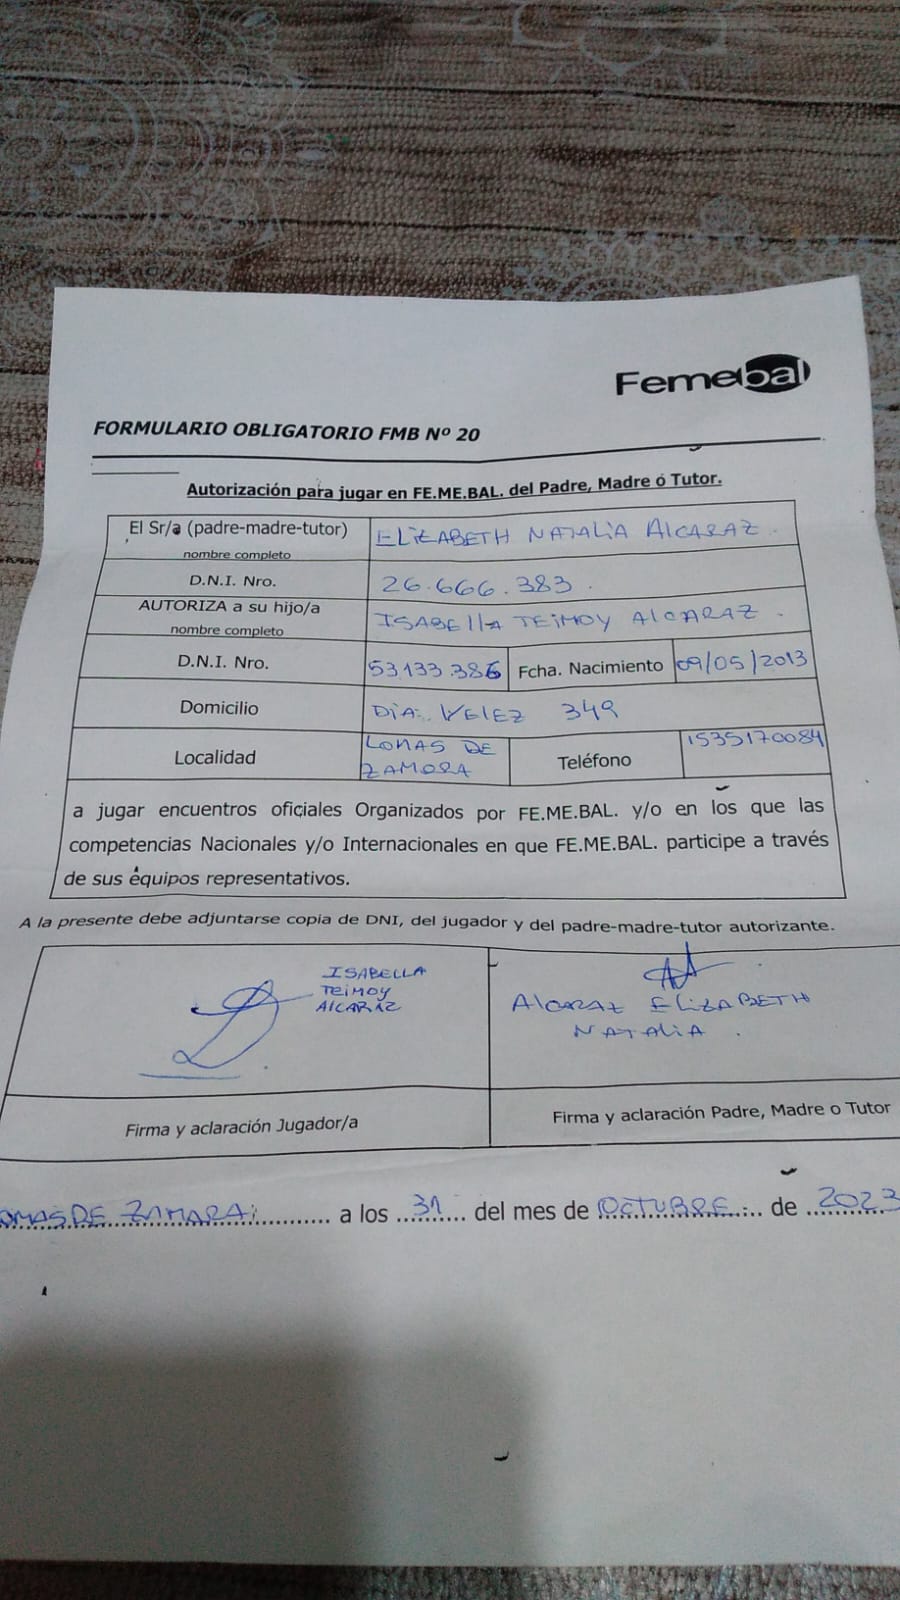 Femebal
FORMULARIO OBLIGATORIO FMB Nº 20
Autorización para jugar en FE.ME.BAL. del Padre, Madre ó Tutor.
El Sr/a (padre-madre-tutor) ELIZABETH NATALIA ALCARAZ
nombre completo
D.N.I. Nro. 26.666.383.
AUTORIZA a su hijo/a ISABELLA TEIMOY ALCARAZ.
nombre completo
D.N.I. Nro. 53.133.386 Fcha. Nacimiento 09/05/2013
Domicilio DIA: VELEZ 349
Localidad LOMAS DE ZAMORA Teléfono 1535170084
a jugar encuentros oficiales Organizados por FE.ME.BAL. y/o en los que las
competencias Nacionales y/o Internacionales en que FE.ME.BAL. participe a través
de sus équipos representativos.
A la presente debe adjuntarse copia de DNI, del jugador y del padre-madre-tutor autorizante.
ISABELLA
TEIMOY
ALCARAZ
ALCARAZ ELIZABETH
NATALIA.
Firma y aclaración Jugador/a
Firma y aclaración Padre, Madre o Tutor
OMAS DE ZAMARA ........... a los ..31.. del mes de OCTUBRE... de ..2023